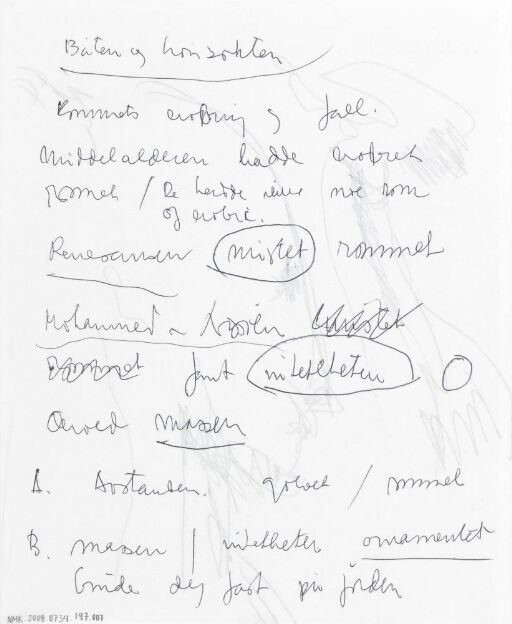 Båten og horisonten
Rommets erobring og fall.
Middelalderen hadde erobret
rommet / De hadde ikke noe rom
og erobre.
Renessansen mistet rommet
Mohammed
rommet fant intetheten
massen
A. Avstanden. golvet / rommet
B. massen / intetheten ornamentet
binde deg fast på jorden
NMK.2008.0734.197.007